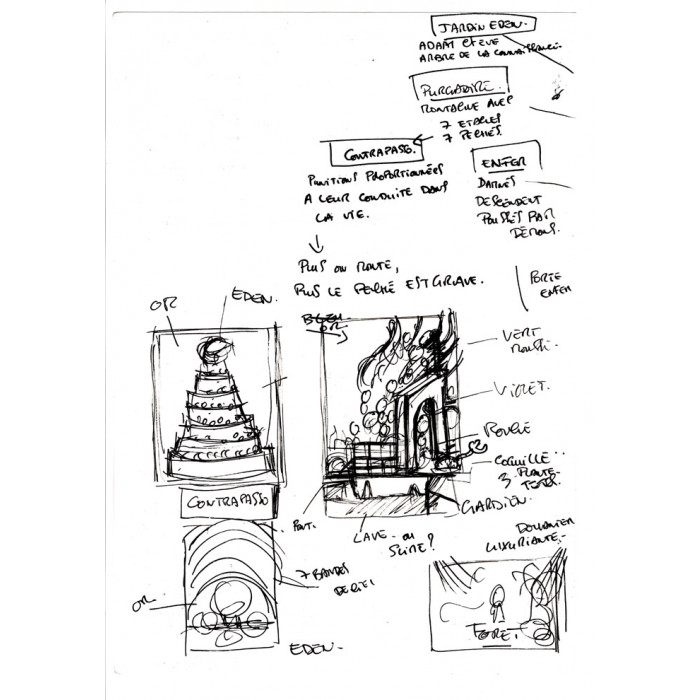 JARDIN EDEN.
ADAM ET EVE
ARBRE DE LA CONNAISSANCE.
PURGATOIRE.
MONTAGNE AVEC
7 ETAPES
7 PECHÉS.
CONTRAPASSO.
PUNITIONS PROPORTIONNÉES
A LEUR CONDUITE DANS
LA VIE.
ENFER
DAMNÉS
DESCENDENT
POUSSÉS PAR
DÉMONS.
PLUS ON MONTE,
PLUS LE PECHÉ EST GRAVE.
PORTE
ENFER
OR
EDEN.
OR.
VERT
VIOLET.
ROUGE
COQUILLE
3
GARDIEN.
CONTRAPASSO
PONT.
LAVE - OU
7 BANDES
DE CIEL
OR.
EDEN.
DOUANIER
LUXURIANTE.
FORET